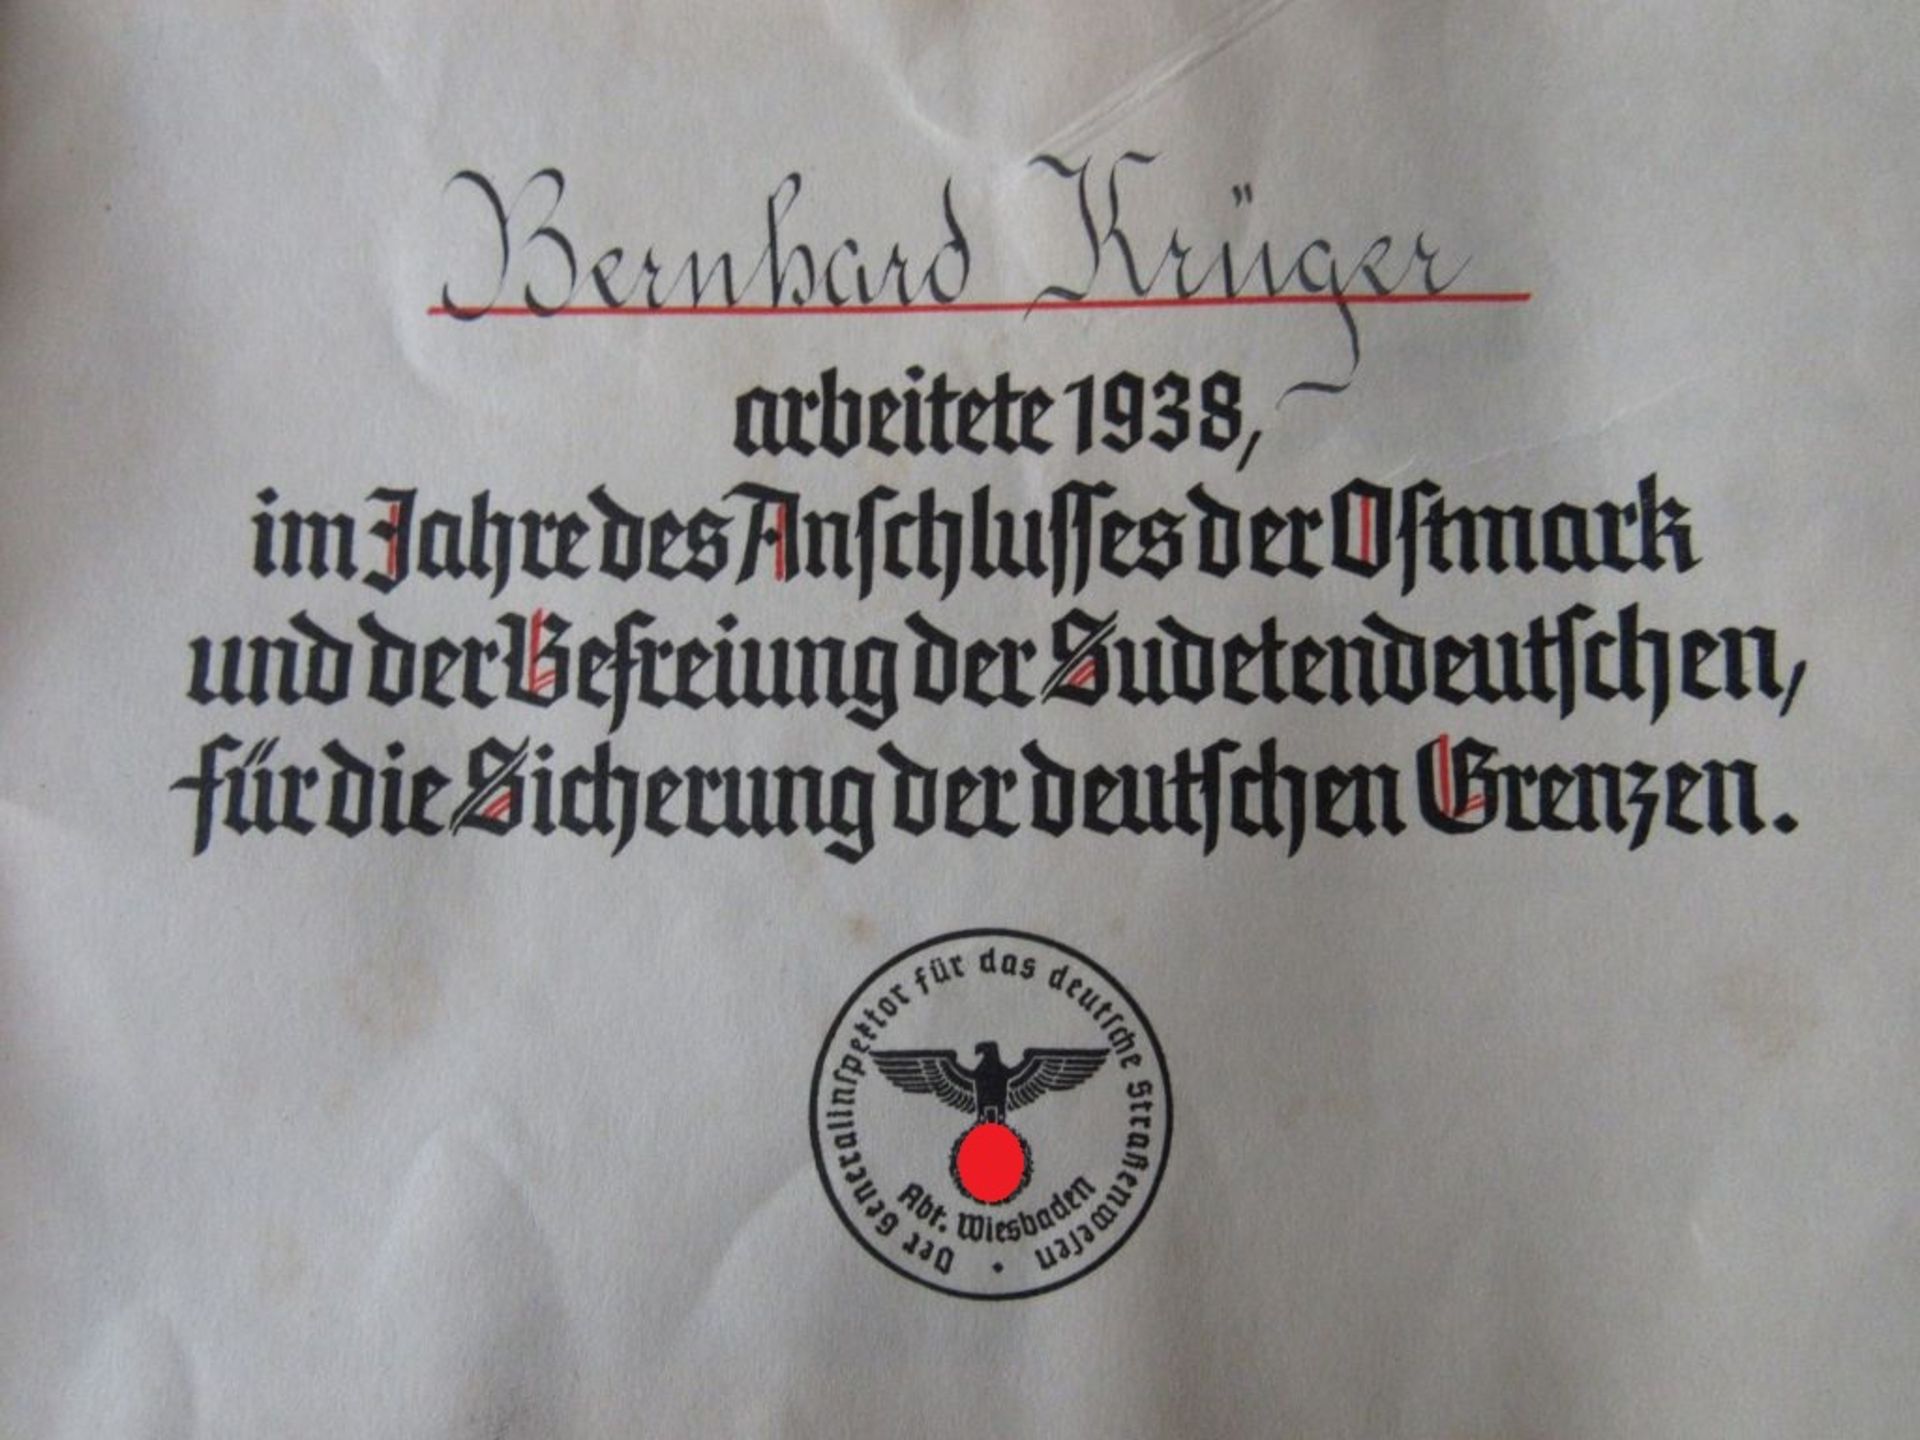 Bernhard Krüger
arbeitete 1938,
im Jahre des Anschlusses der Ostmark
und der Befreiung der Sudetendeutschen,
für die Sicherung der deutschen Grenzen.
Der Generalinspektor für das deutsche Straßenwesen •
Abt. Wiesbaden